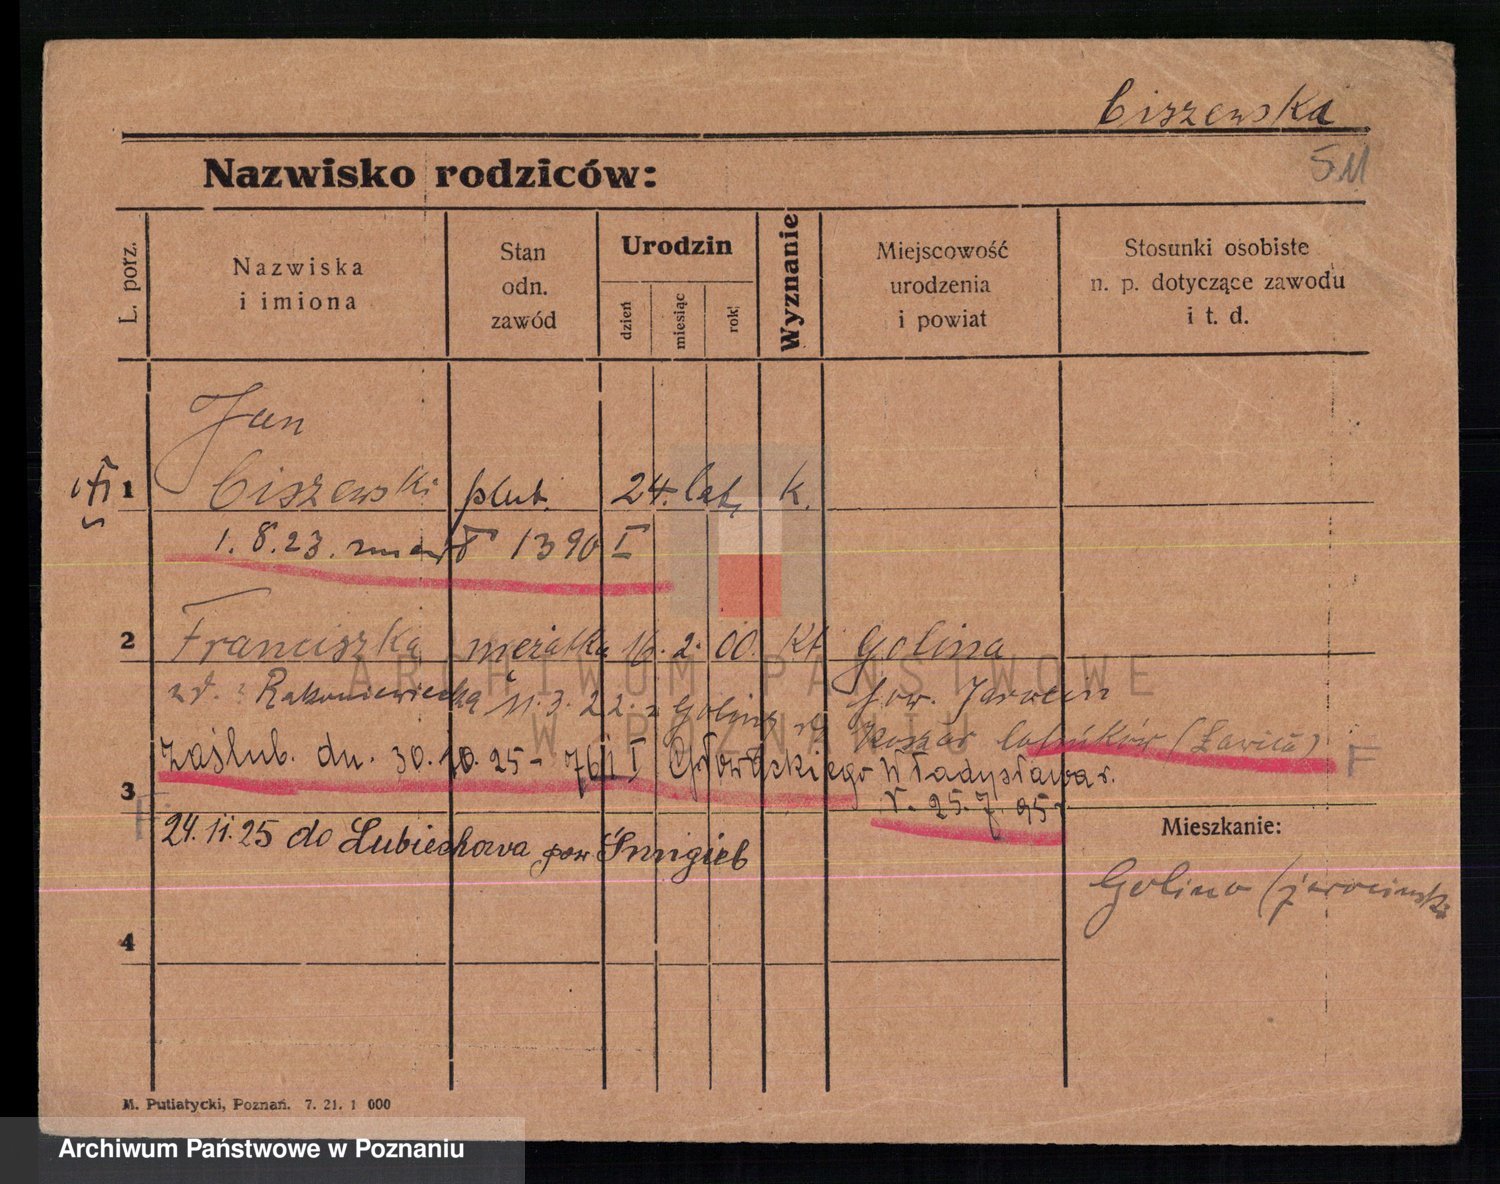 Ciszewska
511
Nazwisko rodziców:
L. porz.
Nazwiska
i imiona
Stan
odn.
zawód
Urodzin
dzień
miesiąc
rok
Wyznanie
Miejscowość
urodzenia
i powiat
Stosunki osobiste
n. p. dotyczące zawodu
i t. d.
Jan
1 Ciszewski plut. 24. lat, k.
1. 8. 23. zmarł 1390 I
2 Franciszka mężatka 16. 2. 00. kt Golina
zd. Rakoniewiecka 11. 3. 22. z Golina pow. Jarocin
koszar lotników (Ławica) F
zaślub. dn. 30. 10. 25 - 761 I Głowackiego Władysława r.
3 r. 25. 7. 95
F
24. 11. 25 do Lubiechowa pow Śmigieb
Mieszkanie:
Golina (jarociński
4
M. Putiatycki, Poznań. 7. 21. 1 000
ARCHIWUM PAŃSTWOWE
W POZNANIU
Archiwum Państwowe w Poznaniu